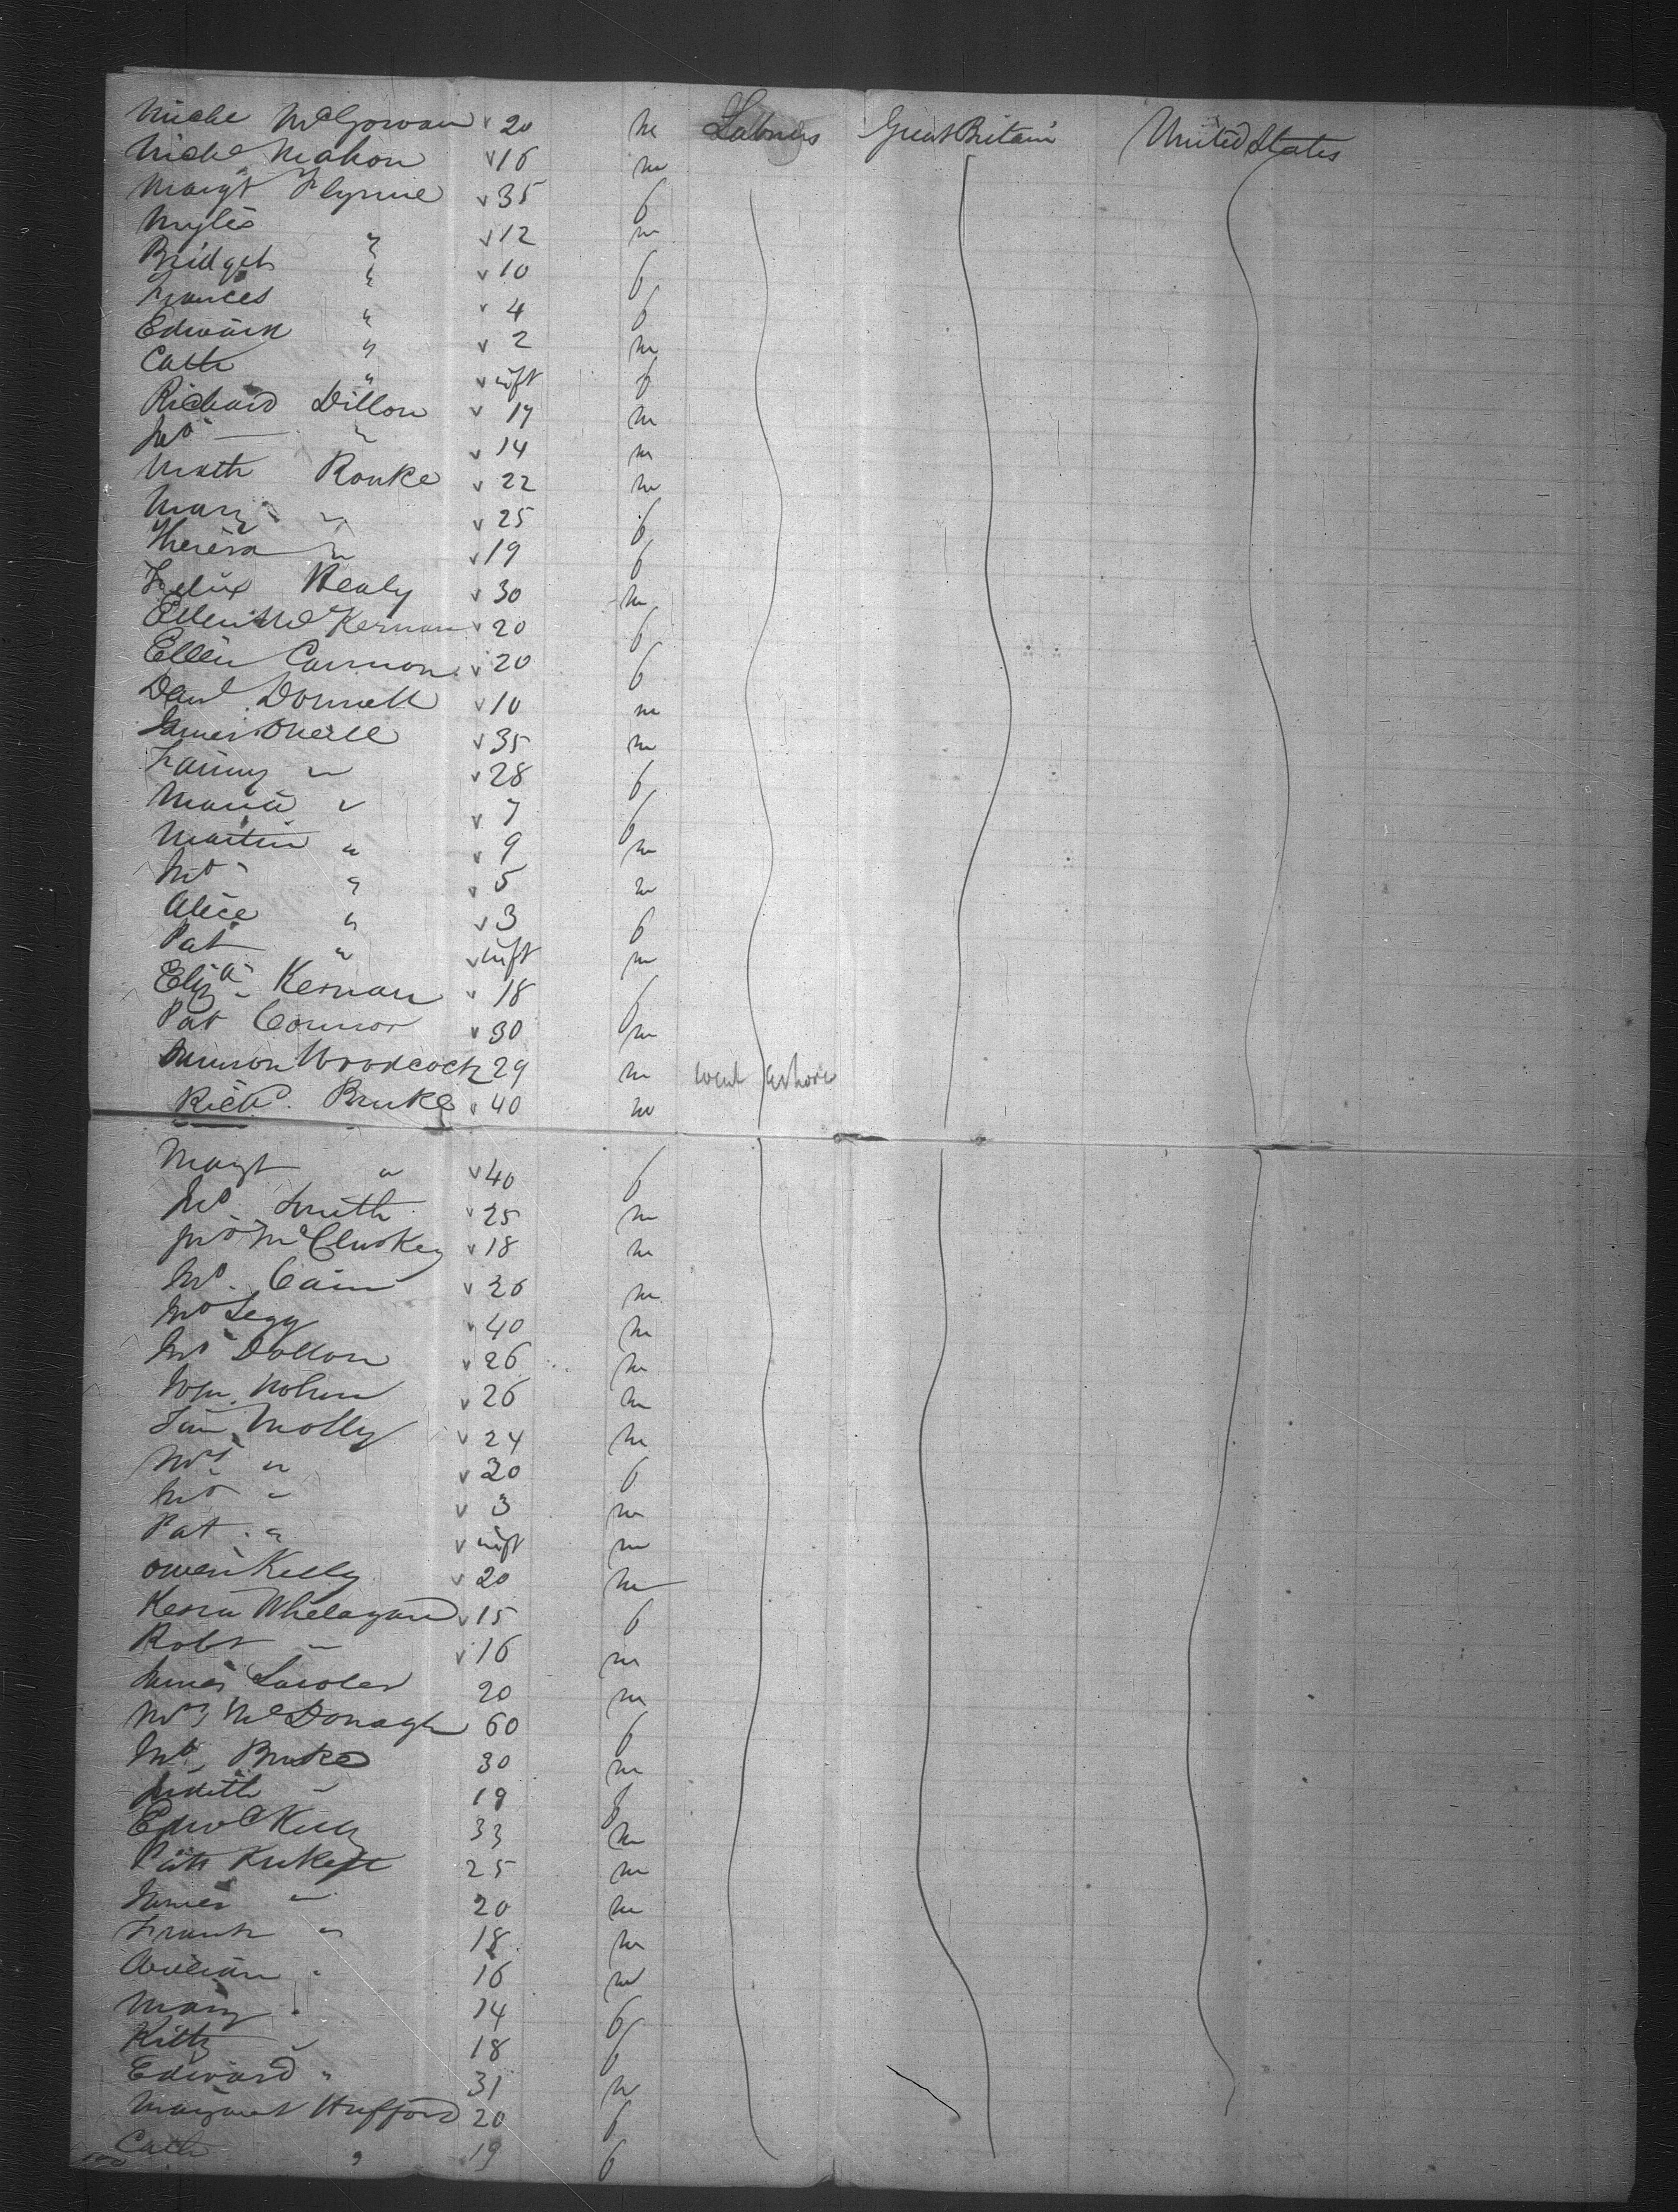 Michl McGowan v 20 m Labrers Great Britain United States
Michl Mahon v 16 m
Margt Flynne v 35 f
Myles " v 12 m
Bridget " v 10 f
Frances " v 4 f
Edward " v 2 m
Cath " v inft f
Richard Dillon v 17 m
Jno " v 14 m
Math Rouke v 22 m
Mary " v 25 f
Theresa " v 19 f
Felix Healy v 30 m
Ellen McKernan v 20 f
Ellen Cannon v 20 f
Danl Donnell v 10 m
James Oneill v 35 m
Fanny " v 28 f
Maria " v 7 f
Martin " v 9 m
Jno " v 5 m
Alice " v 3 f
Pat " v inft m
Eliza Kernan v 18 f
Pat Connor v 30 m
Woodcock 29 m went ashore
Richd. Burke v 40 m
Margt " v 40 f
Jno. Smith v 25 m
Jno McCluskey v 18 m
Jno. Cain v 26 m
Jno Legg v 40 m
Jno Dollon v 26 m
v 26 m
Molly v 24 m
Mrs " v 20 f
Jno " v 3 m
Pat " v inft m
Owen Kelly v 20 m
Whelagan v 15 f
Robt " v 16 m
James Lawler 20 m
Mrs McDonagh 60 f
Jno Burke 30 m
Judith " 19 f
Edwd Kelly 33 m
25 m
James " 20 m
Frank " 18 m
William " 16 m
Mary " 14 f
Kitty " 18 f
Edward " 31 m
Margaret Hufford 20 f
Cath " 19 f